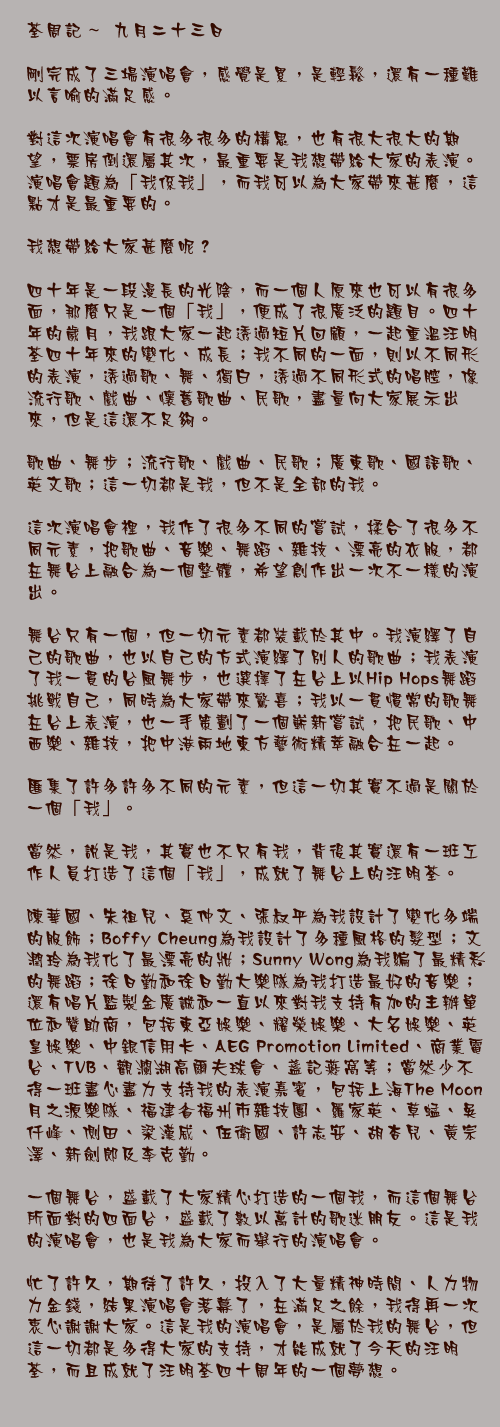 荃周記～ 九月二十三日
剛完成了三場演唱會，感覺是累，是輕鬆，還有一種難
以言喻的滿足感。
對這次演唱會有很多很多的構思，也有很大很大的期
望，票房倒還屬其次，最重要是我想帶給大家的表演。
演唱會題為「我伩我」，而我可以為大家帶來甚麼，這
點才是最重要的。
我想帶給大家甚麼呢？
四十年是一段漫長的光陰，而一個人原來也可以有很多
面，那麼只是一個「我」，便成了很廣泛的題目。四十
年的歲月，我跟大家一起透過短片回顧，一起重溫汪明
荃四十年來的變化、成長；我不同的一面，則以不同形
的表演，透過歌、舞、獨白，透過不同形式的唱腔，像
流行歌、戲曲、懷舊歌曲、民歌，盡量向大家展示出
來，但是這還不足夠。
歌曲、舞步；流行歌、戲曲、民歌；廣東歌、國語歌、
英文歌；這一切都是我，但不是全部的我。
這次演唱會裡，我作了很多不同的嘗試，揉合了很多不
同元素，把歌曲、音樂、舞蹈、雜技、漂亮的衣服，都
在舞台上融合為一個整體，希望創作出一次不一樣的演
出。
舞台只有一個，但一切元素都裝載於其中。我演繹了自
己的歌曲，也以自己的方式演繹了別人的歌曲；我表演
了我一貫的台風舞步，也選擇了在台上以Hip Hops舞蹈
挑戰自己，同時為大家帶來驚喜；我以一貫慣常的歌舞
在台上表演，也一手策劃了一個嶄新嘗試，把民歌、中
西樂、雜技，把中港兩地東方藝術精萃融合在一起。
匯集了許多許多不同的元素，但這一切其實不過是關於
一個「我」。
當然，說是我，其實也不只有我，背後其實還有一班工
作人員打造了這個「我」，成就了舞台上的汪明荃。
陳華國、朱祖兒、莫仲文、張叔平為我設計了變化多端
的服飾；Boffy Cheung為我設計了多種風格的髮型；文
潤玲為我化了最漂亮的妝；Sunny Wong為我編了最精彩
的舞蹈；徐日勤和徐日勤大樂隊為我打造最好的音樂；
還有唱片監製金廣誠和一直以來對我支持有加的主辦單
位和贊助商，包括東亞娛樂、耀榮娛樂、大名娛樂、英
皇娛樂、中銀信用卡、AEG Promotion Limited、商業電
台、TVB、觀瀾湖高爾夫球會、蓋記燕窩等；當然少不
得一班盡心盡力支持我的表演嘉賓，包括上海The Moon
月之源樂隊、福建省福州市雜技團、羅家英、草蜢、吳
仟峰、側田、梁漢威、伍衛國、許志安、胡杏兒、黃宗
澤、新劍郎及李克勤。
一個舞台，盛載了大家精心打造的一個我，而這個舞台
所面對的四面台，盛載了數以萬計的歌迷朋友。這是我
的演唱會，也是我為大家而舉行的演唱會。
忙了許久，期待了許久，投入了大量精神時間、人力物
力金錢，結果演唱會落幕了，在滿足之餘，我得再一次
衷心謝謝大家。這是我的演唱會，是屬於我的舞台，但
這一切都是多得大家的支持，才能成就了今天的汪明
荃，而且成就了汪明荃四十周年的一個夢想。